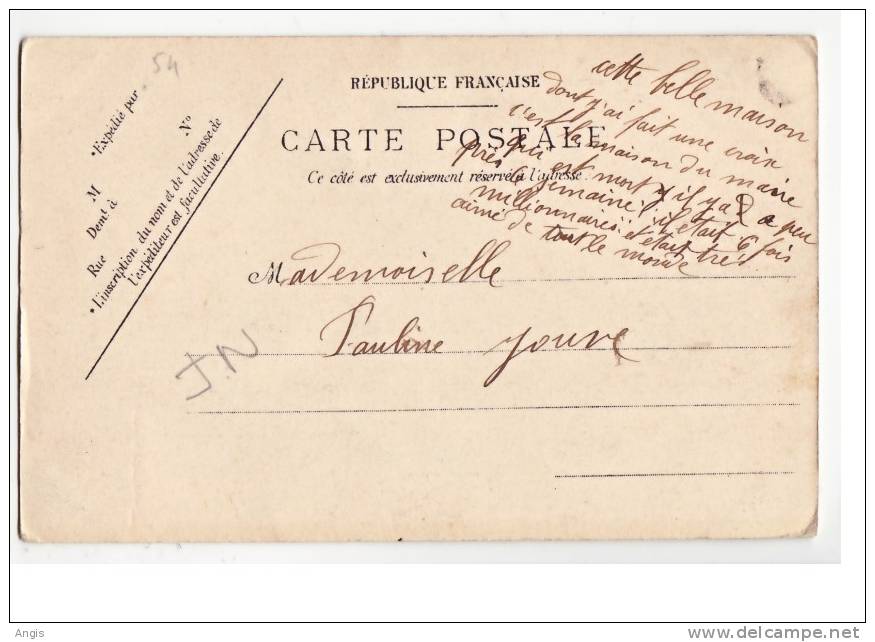 54
RÉPUBLIQUE FRANÇAISE
CARTE POSTALE
Ce côté est exclusivement réservé à l'adresse.
• Expédié par
M
Nº
Demt à
Rue
• L'inscription du nom et de l'adresse de
l'expéditeur est facultative.
cette belle maison
dont j'ai fait une croix
c'est la maison du maire
qui est mort il y a 2 a peu
près semaine il était 6 fois
millionnaire et était très
aimé de tout le monde
Mademoiselle
Pauline Jouve
J.N
Angis
delcampe.net